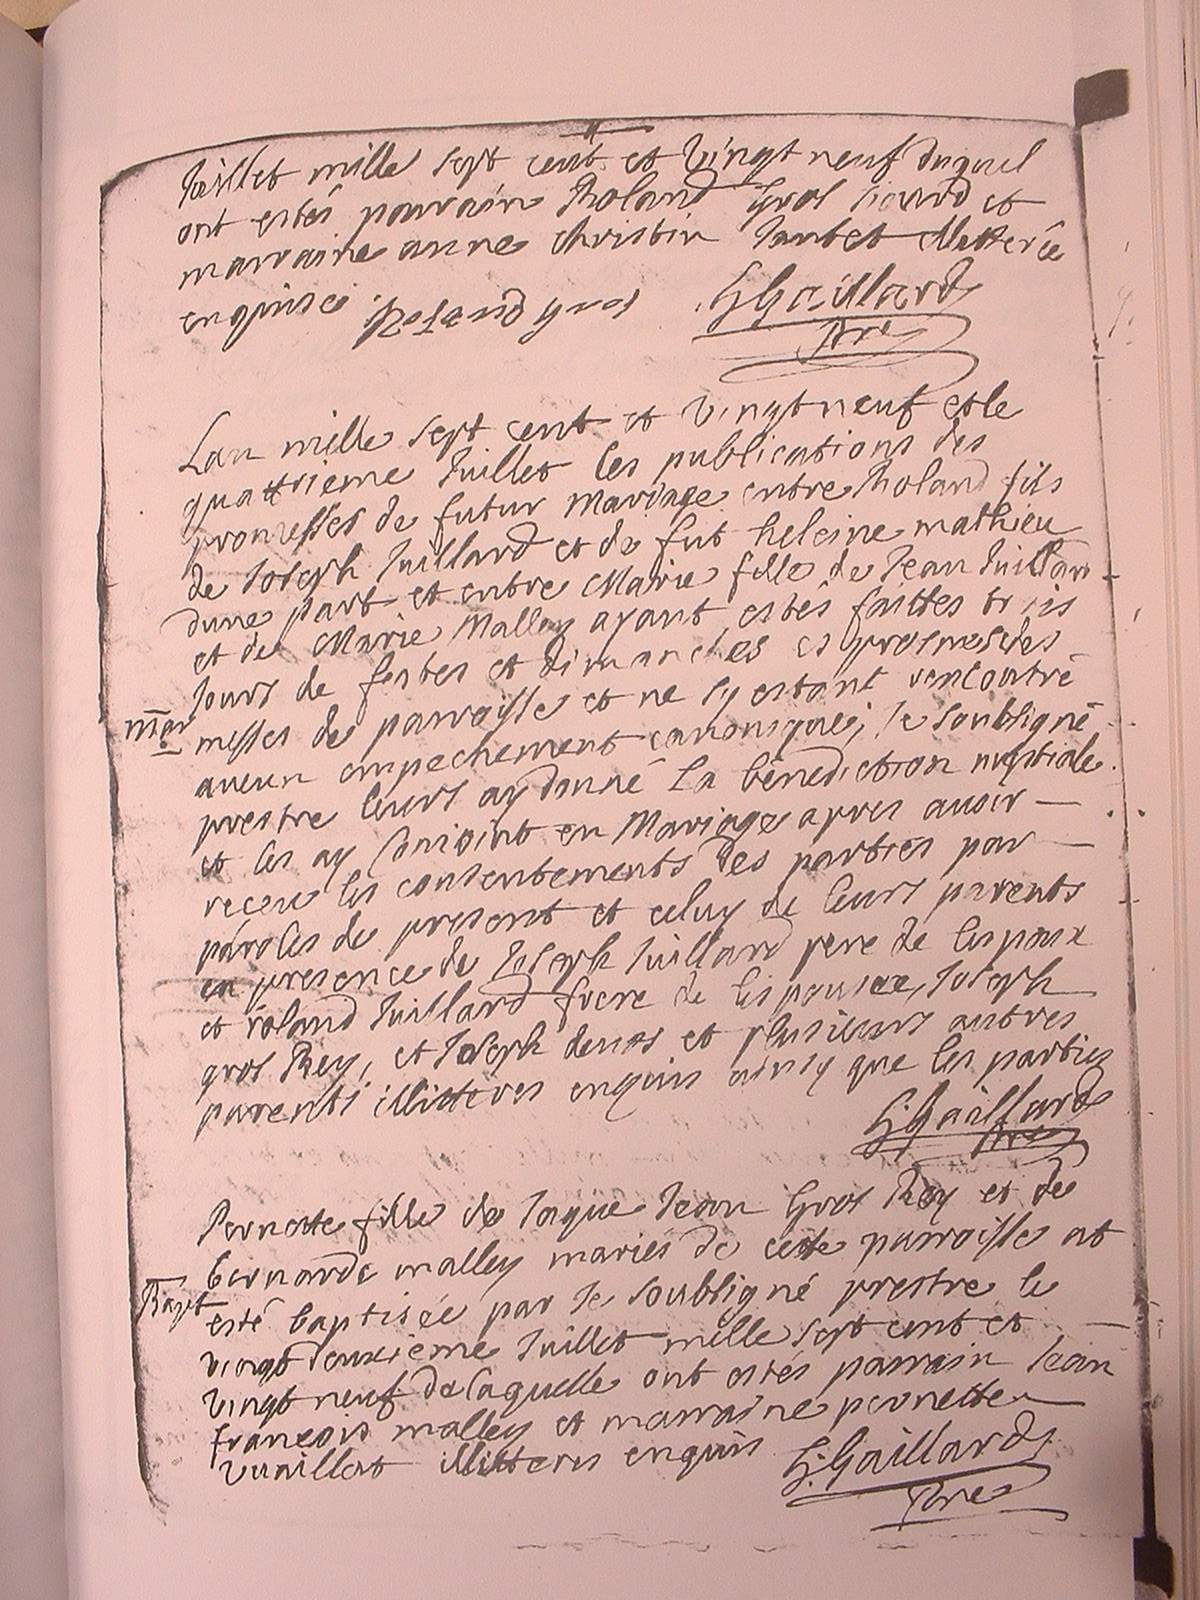 Juillet mille sept cent et vingt neuf duquel
ont estés parrain Roland Gros Girard et
marraine anne christin Jantet illitterée
enquise Roland gros G Gaillard
Pre
Lan mille sept cent et vingt neuf et le
quattrieme Juillet les publications des
promesses de futur Mariage entre Roland fils
de Joseph Juillard et de fut heleine mathieu
dune part et entre Marie fille de Jean Juillard
et de Marie Malley ayant estés faittes trois
Jours de festes et dimanches es prosnes des
mar messes de parroisse et ne sy estant rencontré
aucun empechement canonique, Je soubsigné
prestre leurs ay donné La bénédiction nuptiale
et les ay Conjoint en Mariage apres avoir
receu les consentements des parties par
paroles de present et celuy de leurs parents
en presence de Joseph Juillard pere de lespoux
et roland Juillard frere de lespousee, Joseph
gros Rey, et Joseph et plusieurs autres
parents illitteres enquis ainsy que les parties
G Gaillard
Pre
Pernette fille de Jaque Jean Gros Rey et de
bernarde malley mariés de cette parroisse at
Bapt esté baptisée par Je soubsigné prestre le
vingt deuxieme Juillet mille sept cent et
vingt neuf de laquelle ont estés parrain Jean
francois malley et marraine pernette
vuaillet illitteres enquis G: Gaillard
Pre